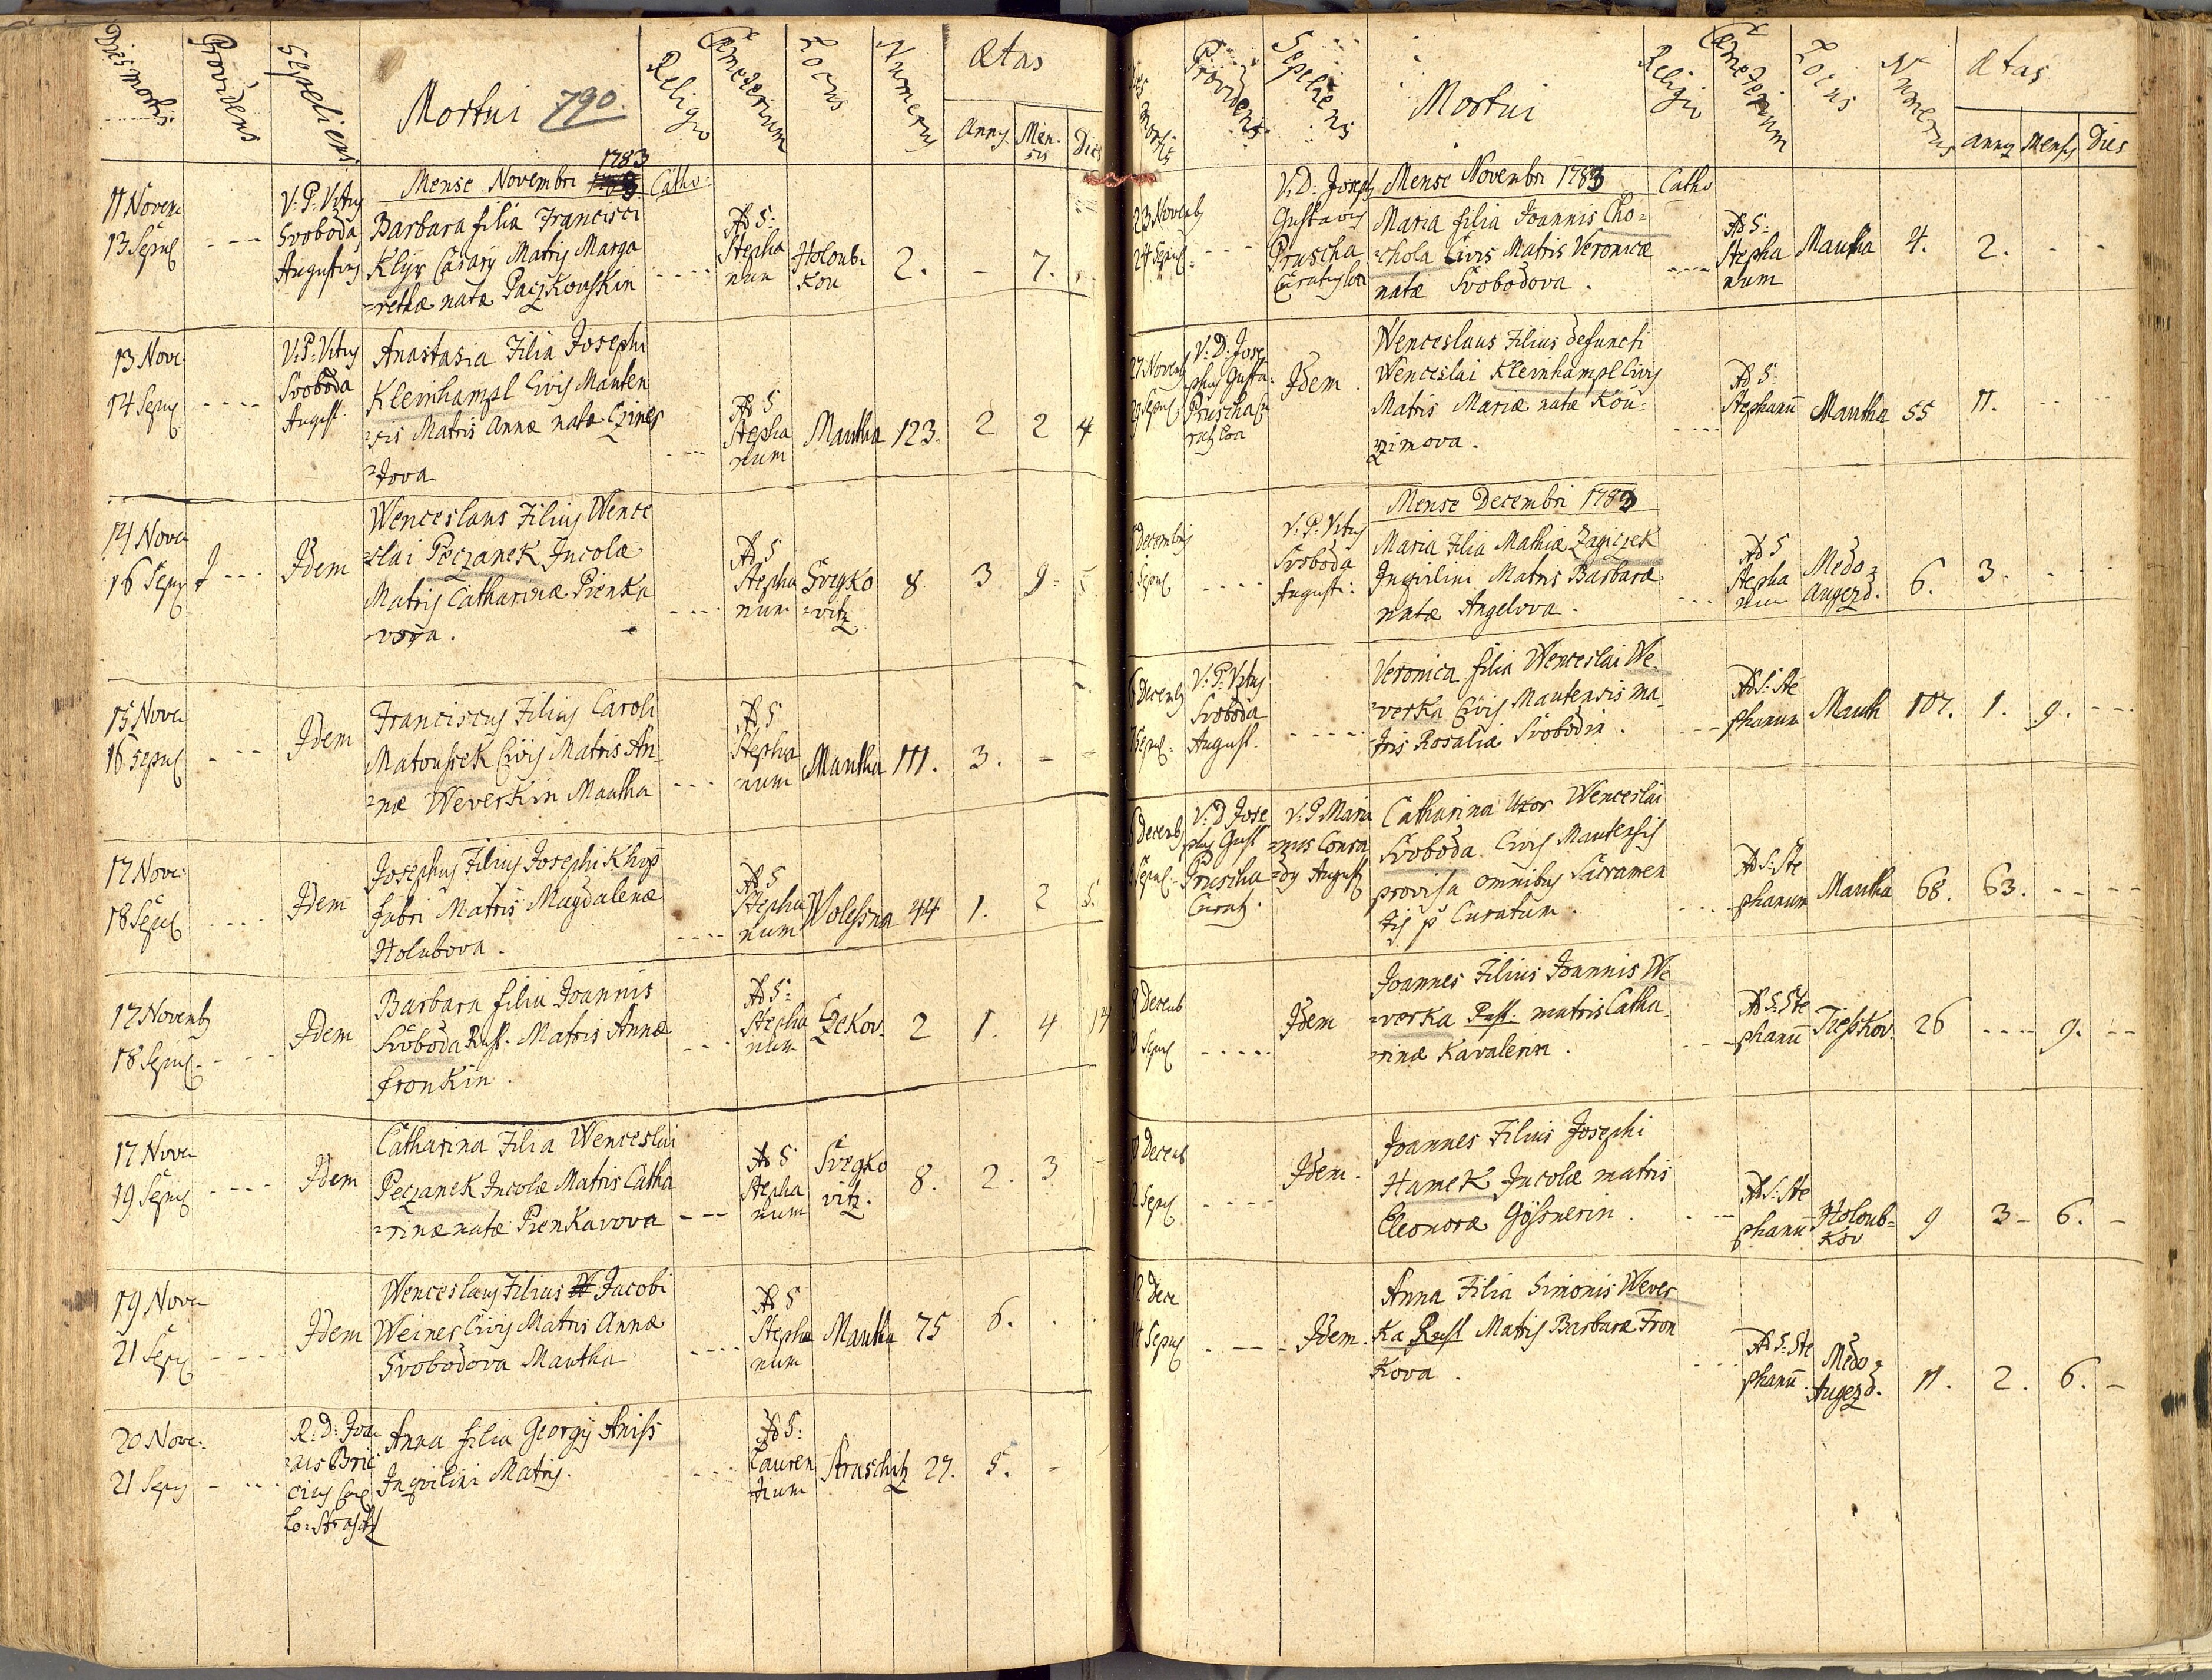 Dies mortis
Providens
Sepeliens
Mortui 790.
Religio
Cæmeterium
Locus
Numerus
Ætas
Anny
Mensis
Dies
1783
Mense Novembri
Catho:
11 Novem
13 Sepul
V: P: Vitus
Svoboda
Augustinus
Barbara filia Francisci
Klyr Casary Matris Marga
=rethæ natæ Paczkowskin
Ad S:
Stepha
num
Holoub=
kou
2. - 7.
13 Nove
14 Sepul
V: P: Vitus
Svoboda
August.
Anastasia Filia Josephi
Kleinhampl Civis Mauten
=sis Matris Annæ natæ Cziner
=tova
Ad S
Stepha
num
Mautha 123. 2 2 4
14 Nove
16 Sepu
Idem
Wenceslaus Filius Wence
=slai Peczanek Incolæ
Matris Catharinæ Pienka
=vova.
Ad S
Stepha
num
Svegko
=vitz
8 3 9
15 Nove
16 Sepul
Idem
Franciscus Filius Caroli
Matoussek Civis Matris An
=næ Weverkin Mautha
Ad S
Stepha
num
Mautha 111. 3. -
17 Nove:
18 Sepul
Idem
Josephus Filius Josephi Khop
fabri Matris Magdalenæ
Holubova.
Ad S
Stepha
num
Wolessna 44 1. 2 5.
17 Novemb
18 Sepul.
Idem
Barbara filia Joannis
Svoboda Rust. Matris Annæ
fronkin.
Ad S:
Stepha
num
Czekov. 2 1. 4 14
17 Nove
19 Sepul
Idem
Catharina Filia Wenceslai
Peczanek Incolæ Matris Catha
=rinæ natæ Pienkavova
Ad S
Stepha
num
Svegko
vitz.
8. 2. 3
19 Nove
21 Sepu
Idem
Wenceslaus Filius Jacobi
Weiner Civis Matris Annæ
Svobodova Mautha
Ad S
Stepha
num
Mautha 75 6.
20 Nove:
21 Sepu
R: D: Joa
nes Bric
cius
Lo: Straschtz
Anna filia Georgii Aniss
Inqvilini Matris.
Ad S:
Lauren
tium
Straschitz 27. 5. -
Dies
Mortis
Providens
Sepeliens
Mortui
Religio
Cæmeterium
Locus
Numerus
Ætas
Anny Mensy Dies
Mense Novembri 1783
Catho
23 Novemb
24 Sepul
V: D: Joseph
Gustavus
Pruscha
Curatus loci
Maria filia Joannis Cho=
=chola Civis Matris Veronicæ
natæ Svobodova.
Ad S:
Stepha
num
Mautha 4. 2. - -
27 Novemb
29 Sepul.
V: D: Jose
phus Gusta:
Pruscha Cu
ratus loci
Idem.
Wenceslaus Filius defuncti
Wenceslai Kleinhampl Civis
Matris Mariæ natæ Kou=
=zimova.
Ad S:
Stephanū
Mautha 55 11.
Mense Decembri 1783
Decembris
Sepul
V: P: Vitus
Svoboda
Augusti:
Maria Filia Mathiæ Zagiczek
Inqvilini Matris Barbaræ
natæ Angelova.
Ad S
Stepha
num
Medo=
Augezd.
6. 3. - -
6 Decemb
7 Sepul.
V: P: Vitus
Svoboda
August.
Veronica filia Wenceslai We=
=verka Civis Mautensis ma
tris Rosaliæ Svobodin.
Ad S: Ste
phanum
Mauth 107. 1. 9. - - -
6 Decemb
Sepul.
V: D: Jose
phus Gust
Pruscha
Curat.
V: P. Maria
=nus Conra
=dy August
Catharina Uxor Wenceslai
Svoboda Civis Mautensis
provisa omnibus Sacramen
tis p Curatum.
Ad S: Ste
phanum
Mautha 68. 63. - - - -
8 Decemb
Sepul
Idem
Joannes Filius Joannis We
=verka Rust. matris Catha
=rinæ Kavalerin.
Ad S: Ste
phanū
Tiesskov. 26 - - - - 9. - -
Decemb
Sepul
Idem.
Joannes Filius Josephi
Hamek Incolæ matris
Eleonoræ Gössnerin.
Ad S: Ste
phanū
Holoub=
kov
9 3 - 6. -
12 Dece
14 Sepul
Idem.
Anna Filia Simonis Wever
ka Rust Matris Barbaræ Fron
kova.
Ad S: Ste
phanū
Medo=
Augezd.
11. 2. 6. -